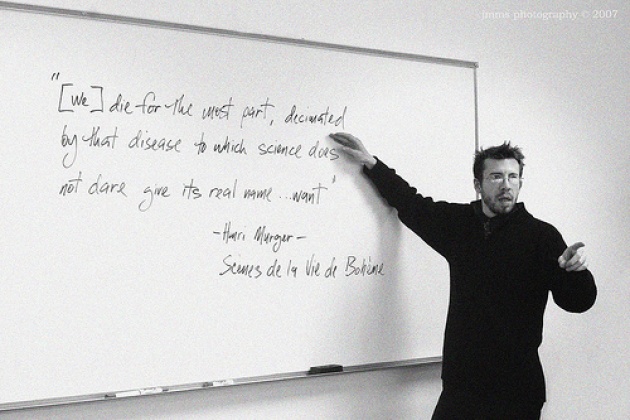 imms photography © 2007
"[We] die for the most part, decimated
by that disease to which science does
not dare give its real name...want"
-Henri Murger-
Scènes de la Vie de Bohème